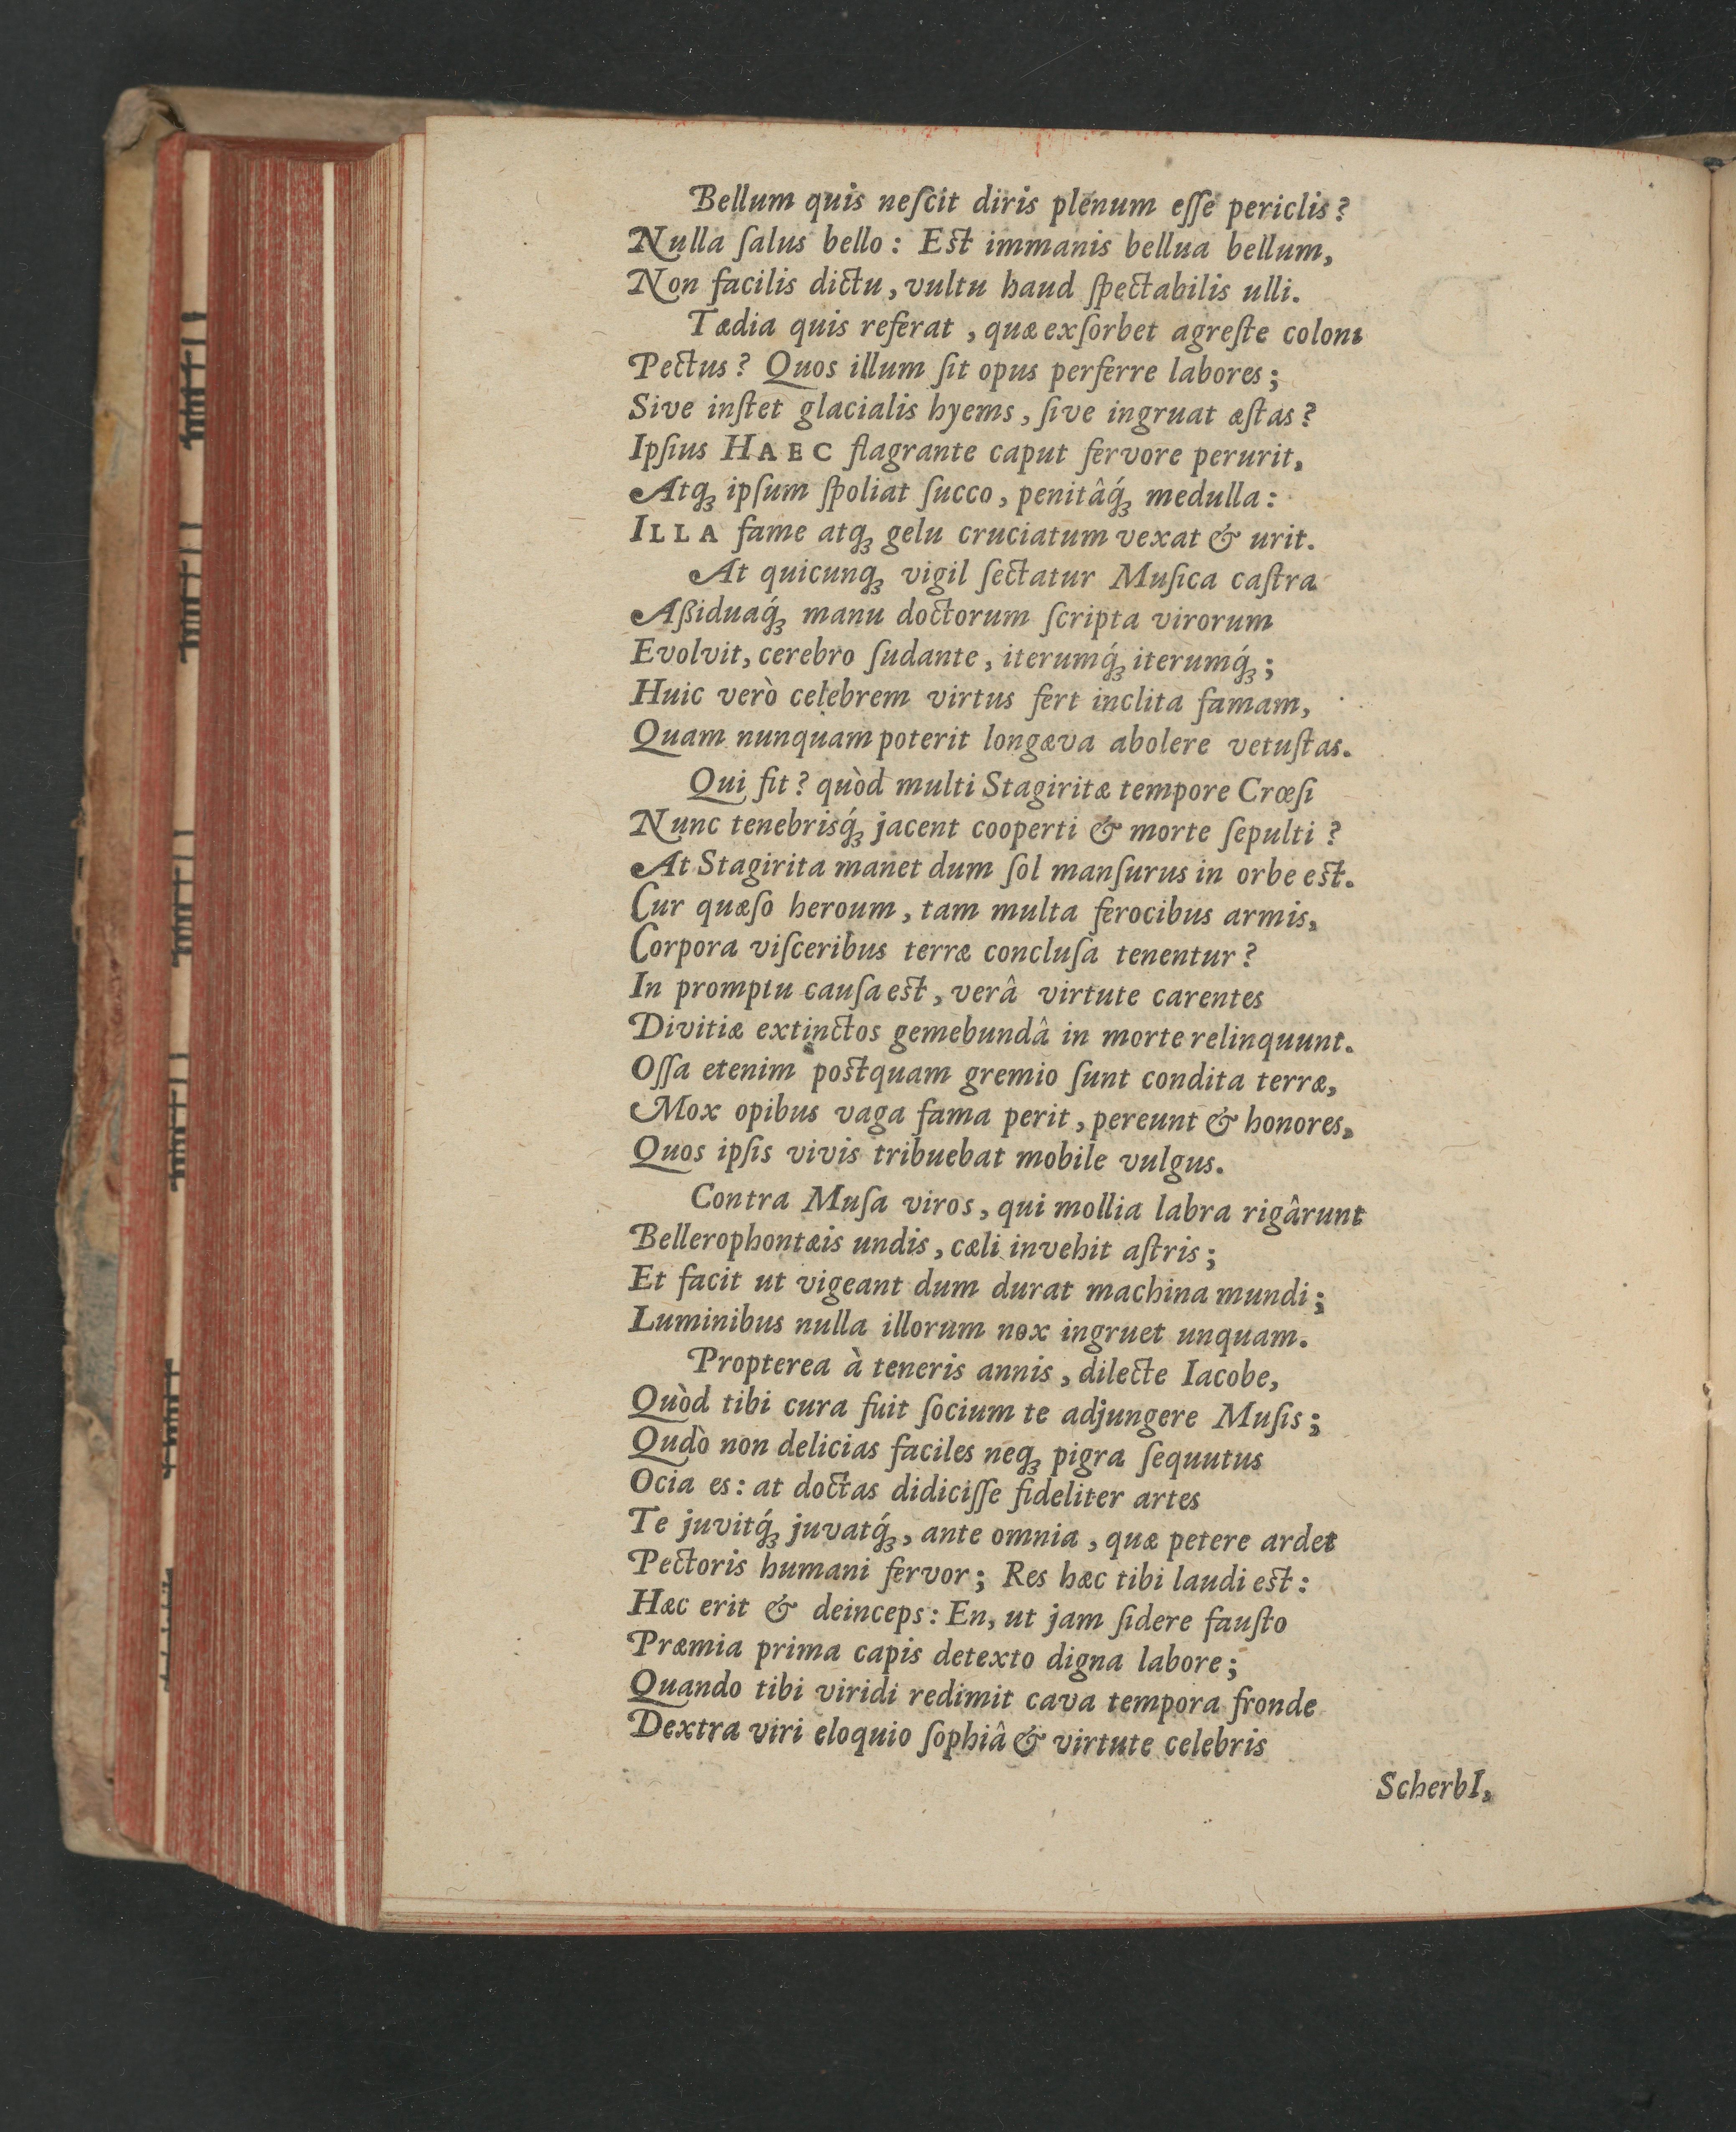 Bellum quis neſcit diris plenum eſſe periclis?
Nulla ſalus bello: Est immanis bellua bellum,
Non facilis dictu, vultu haud ſpectabilis ulli.
Tædia quis referat, quæ exſorbet agreſte coloni
Pectus? Quos illum ſit opus perferre labores;
Sive inſtet glacialis hyems, ſive ingruat æſtas?
Ipſius HAEC flagrante caput fervore perurit,
Atq́ꝫ ipſum ſpoliat ſucco, penitâq́ꝫ medulla:
ILLA fame atqꝫ gelu cruciatum vexat & urit.
At quicunqꝫ vigil ſectatur Muſica caſtra
Aßiduaq́ꝫ manu doctorum ſcripta virorum
Evolvit, cerebro ſudante, iterumq́ꝫ iterumq́ꝫ;
Huic verò celebrem virtus fert inclita famam,
Quam nunquam poterit longæva abolere vetuſtas.
Qui fit? quòd multi Stagiritæ tempore Crœſi
Nunc tenebrisq́ꝫ jacent cooperti & morte ſepulti?
At Stagirita manet dum ſol manſurus in orbe est.
Cur quæſo heroum, tam multa ferocibus armis,
Corpora viſceribus terræ concluſa tenentur?
In promptu cauſa est, verâ virtute carentes
Divitiæ extinctos gemebundâ in morte relinquunt.
Oſſa etenim postquam gremio ſunt condita terræ,
Mox opibus vaga fama perit, pereunt & honores,
Quos ipſis vivis tribuebat mobile vulgus.
Contra Muſa viros, qui mollia labra rigârunt
Bellerophontæis undis, cæli invehit aſtris;
Et facit ut vigeant dum durat machina mundi;
Luminibus nulla illorum nox ingruet unquam.
Propterea à teneris annis, dilecte Iacobe,
Quòd tibi cura fuit ſocium te adjungere Muſis;
Qudò non delicias faciles neqꝫ pigra ſequutus
Ocia es: at doctas didiciſſe fideliter artes
Te juvitq́ꝫ juvatq́ꝫ, ante omnia, quæ petere ardet
Pectoris humani fervor; Res hæc tibi laudi est:
Hæc erit & deinceps: En, ut jam ſidere fauſto
Præmia prima capis detexto digna labore;
Quando tibi viridi redimit cava tempora fronde
Dextra viri eloquio ſophiâ & virtute celebris
ScherbI,